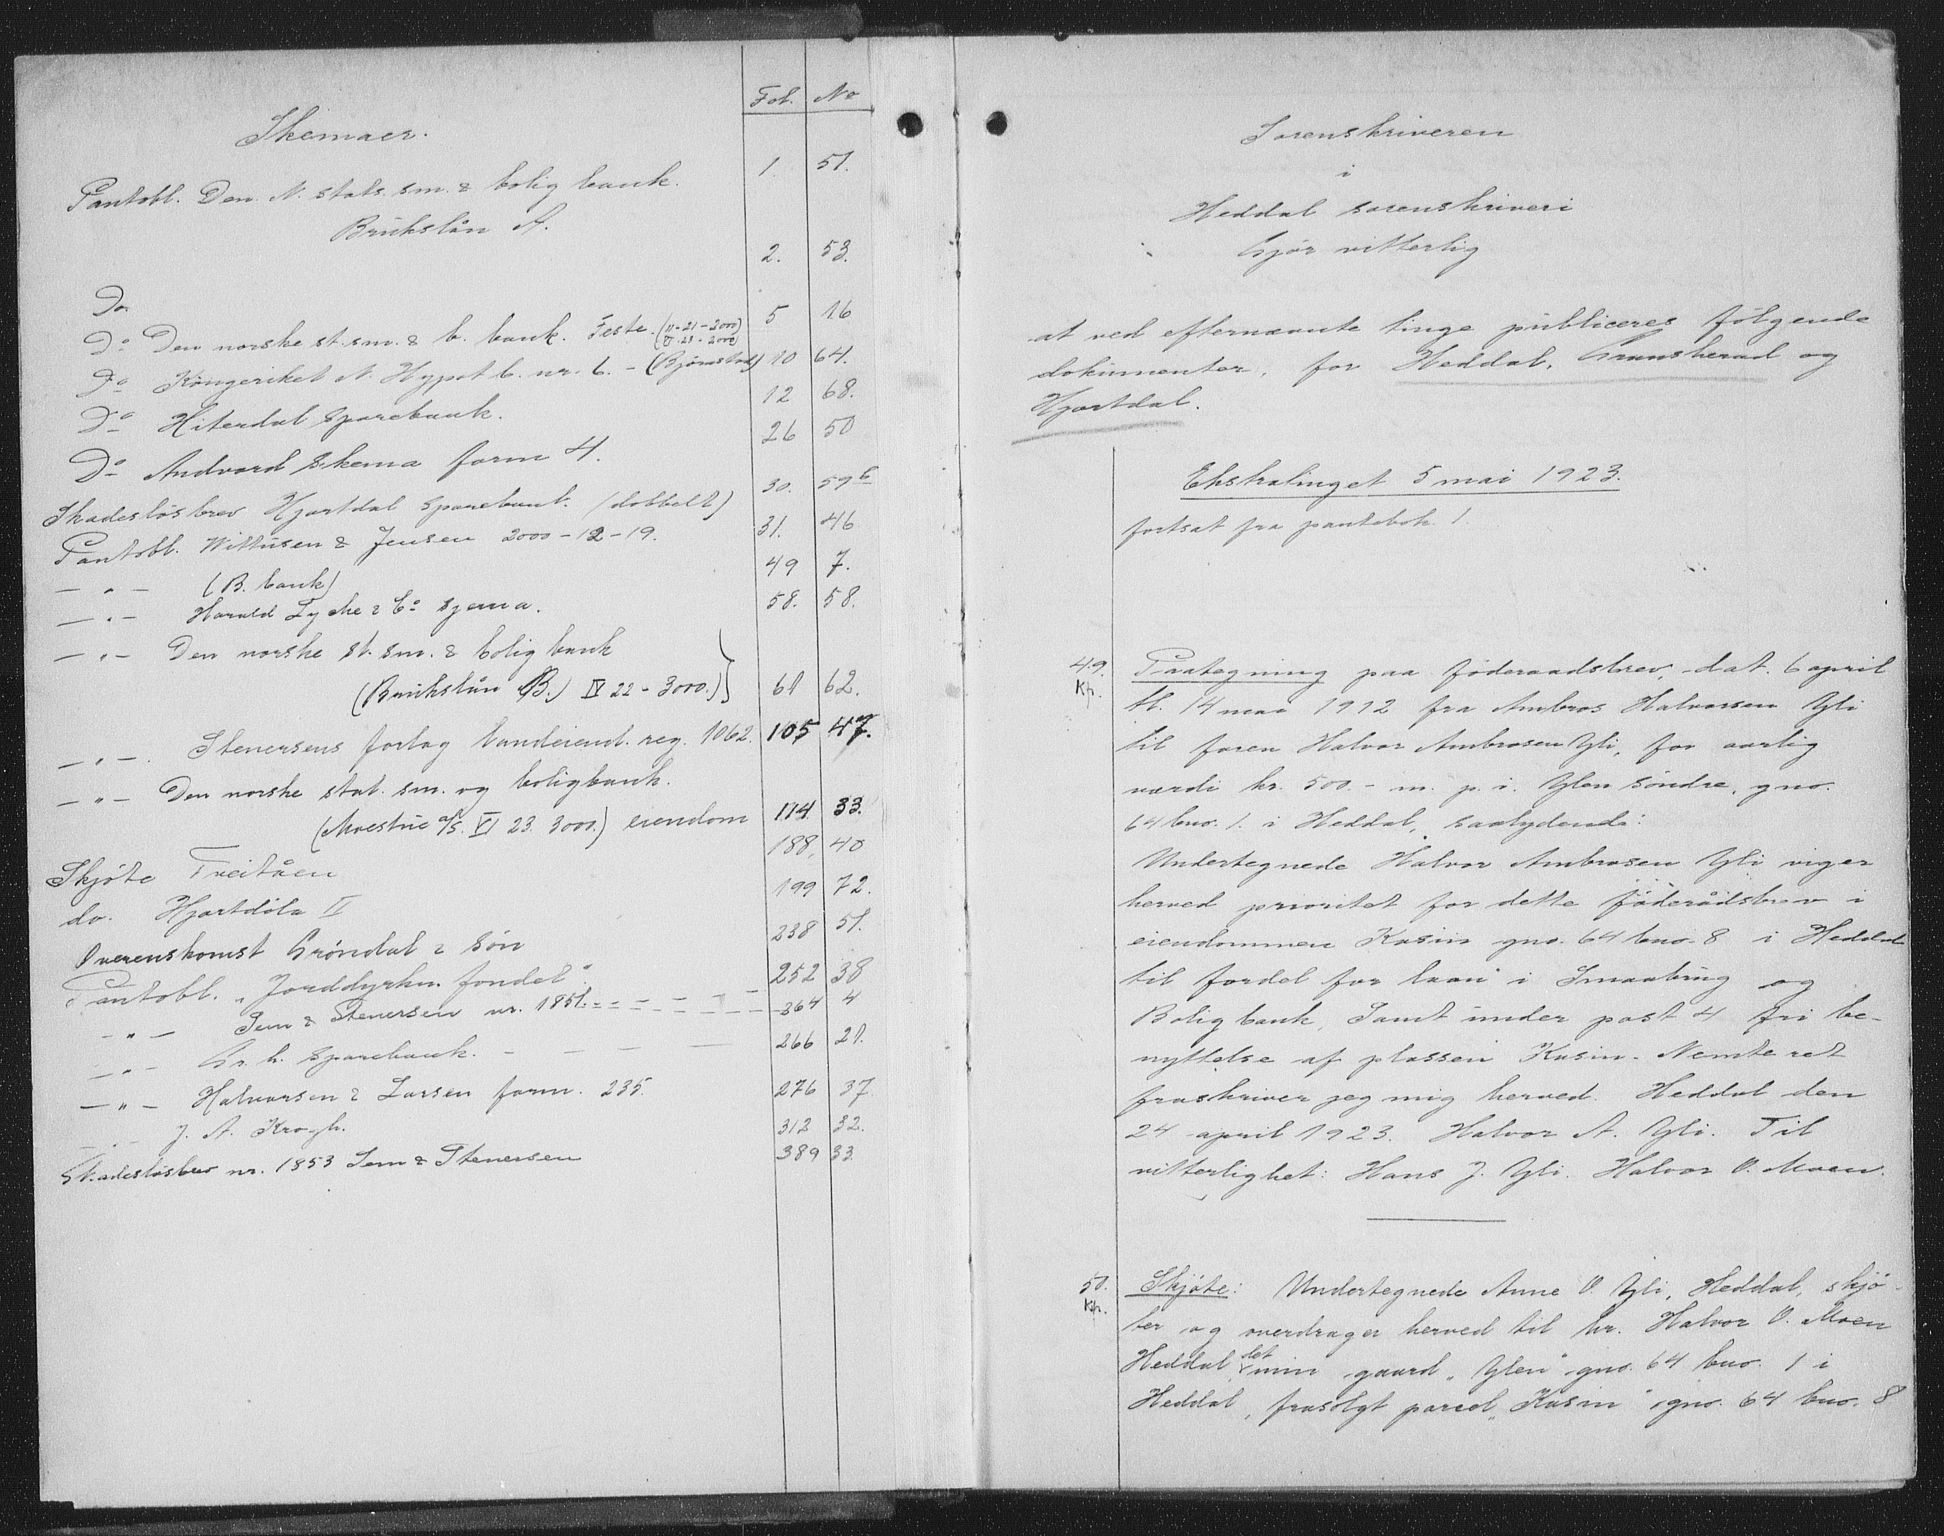 Fol. No
Skemaer.
Pantobl. Den N. stats. sm. & bolig bank. 1. 51.
Brukslån A.
Do 2. 53.
Do Den norske st. sm. & b. bank. Feste. (II-21-2000) 5 16
VI. 23. 2000
Do Kongeriket N Hypot b. nr. 6. - (Bjørnstad) 10 64.
Do Hiterdal sparebank. 12 68.
Do Andvord skema form 4. 26 50
Skadesløsbrev Hjartdal sparebank. (dobbelt) 30. 59b
Pantobl. Wittusen & Jensen 2000-12-19. 31. 46
- " - (B. bank) 49 7.
- " - Harald Lyche & Co sjema. 58. 58.
- " - Den norske st. sm. & bolig bank
(Brukslån (B.) IV 22 - 3000.) 61 62.
- " - Stenersens forlag landeiend. reg. 1062. 105 47.
- " - Den norske stat. sm. og boligbank.
(Moestue a/s. VI 23. 3000.) eiendom 174 33.
Skjøte Tveitåen 188, 40
do. Hjartdøla II 199 72.
Overenskomst Grøndal & Søn 238 51.
Pantobl. "Jorddyrkn. fondet" 252 38
- " - Sem & Stenersen nr. 1851. 364 4
- " - Gr. h. Sparebank. 266 21.
- " - Halvorsen & Larsen form. 235. 276 37
- " - J. A. Krogh. 312 32.
Skadesløsbrev nr. 1853 Sem & Stenersen 389 33
Sorenskriveren
i
Heddal sorenskriveri
Gjør vitterlig
at ved efternævnte tinge publiceres følgende
dokumenter, for Heddal, Gransherad og
Hjartdal.
Ekstratinget 5 mai 1923.
fortsat fra pantebok 1.
49. Paategning paa føderaadsbrev, dat. 6 april
Kr. tl. 14 mai 1912 fra Ambros Halvorsen Yli
til faren Halvor Ambrosen Yli, for aarlig
værdi kr. 500.- m. p. i. Ylen søndre, gno.
64 bno. 1. i Heddal, saalydende:
Undertegnede Halvor Ambrosen Yli viger
herved prioritet for dette føderådsbrev i
eiendommen Kasin gno. 64 bno. 8 i Heddal
til fordel for laan i Smaabruk og
Bolig bank, Samt under post 4 fri be-
nyttelse af plassen Kasin. Nemte ret
fraskriver jeg mig herved. Heddal den
24 april 1923. Halvor A. Yli. Til
vitterlighet: Hans J. Yli. Halvor O. Moen.
50. Skjøte: Undertegnede Anne O. Yli, Heddal, skjø-
Kr. ter og overdrager herved til hr. Halvor O. Moen
Heddal, det min gaard "Ylen" gno. 64 bno. 1 i
Heddal, frasolgt parcel "Kasin" gno. 64 bno. 8